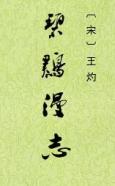 〔宋〕王灼
碧鷄漫志